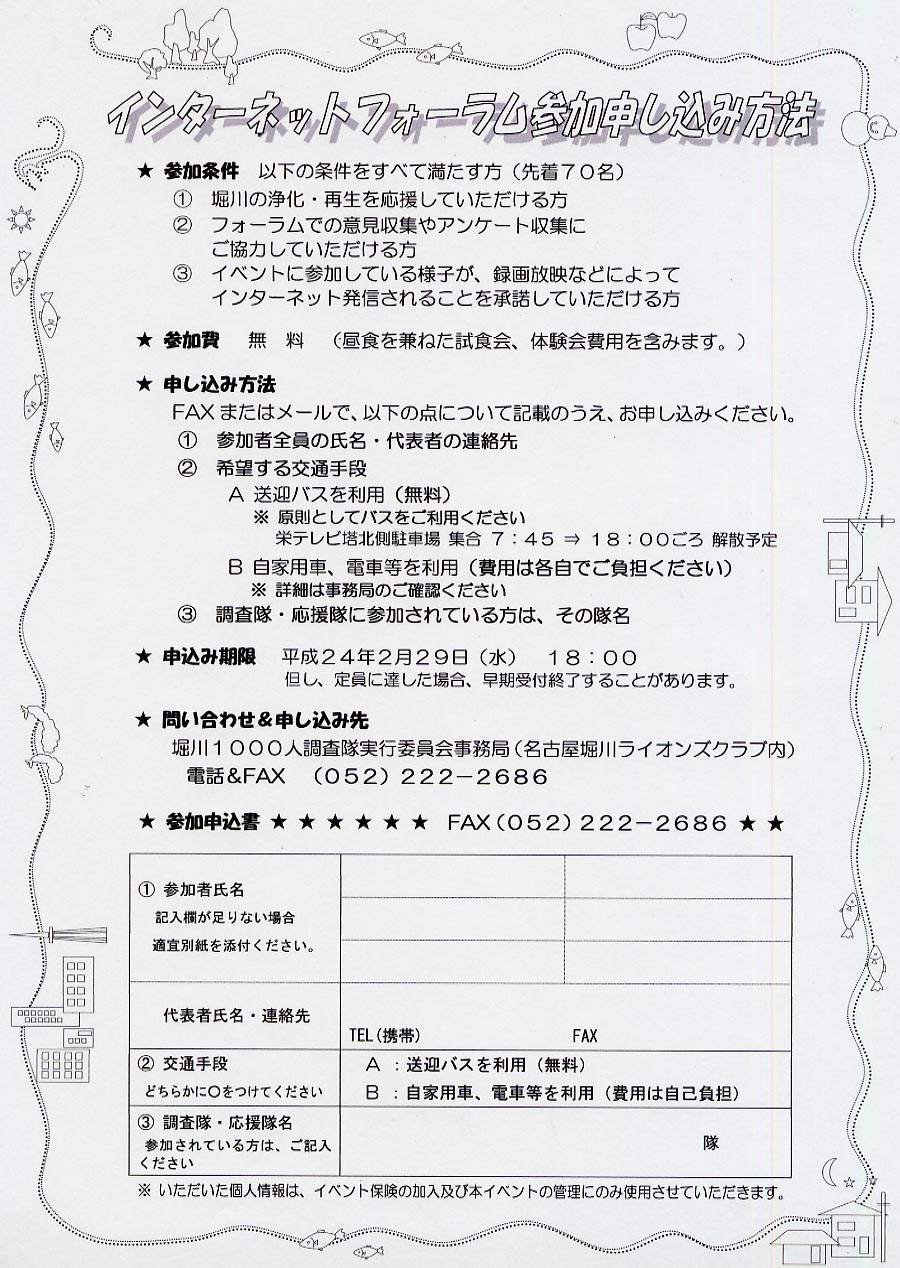 インターネットフォーラム参加申し込み方法
★ 参加条件 以下の条件をすべて満たす方（先着７０名）
① 堀川の浄化・再生を応援していただける方
② フォーラムでの意見収集やアンケート収集に
ご協力していただける方
③ イベントに参加している様子が、録画放映などによって
インターネット発信されることを承諾していただける方
★ 参加費 無 料 （昼食を兼ねた試食会、体験会費用を含みます。）
★ 申し込み方法
FAXまたはメールで、以下の点について記載のうえ、お申し込みください。
① 参加者全員の氏名・代表者の連絡先
② 希望する交通手段
A 送迎バスを利用（無料）
※ 原則としてバスをご利用ください
栄テレビ塔北側駐車場 集合 ７：４５ ⇒ １８：００ごろ 解散予定
B 自家用車、電車等を利用（費用は各自でご負担ください）
※ 詳細は事務局のご確認ください
③ 調査隊・応援隊に参加されている方は、その隊名
★ 申込み期限 平成２４年２月２９日（水） １８：００
但し、定員に達した場合、早期受付終了することがあります。
★ 問い合わせ＆申し込み先
堀川１０００人調査隊実行委員会事務局（名古屋堀川ライオンズクラブ内）
電話＆FAX （０５２）２２２－２６８６
★ 参加申込書 ★ ★ ★ ★ ★ ★ FAX（０５２）２２２－２６８６ ★ ★
① 参加者氏名
記入欄が足りない場合
適宜別紙を添付ください。
代表者氏名・連絡先
TEL（携帯） FAX
② 交通手段
どちらかに○をつけてください
A ：送迎バスを利用（無料）
B ：自家用車、電車等を利用（費用は自己負担）
③ 調査隊・応援隊名
参加されている方は、ご記入
ください
隊
※ いただいた個人情報は、イベント保険の加入及び本イベントの管理にのみ使用させていただきます。